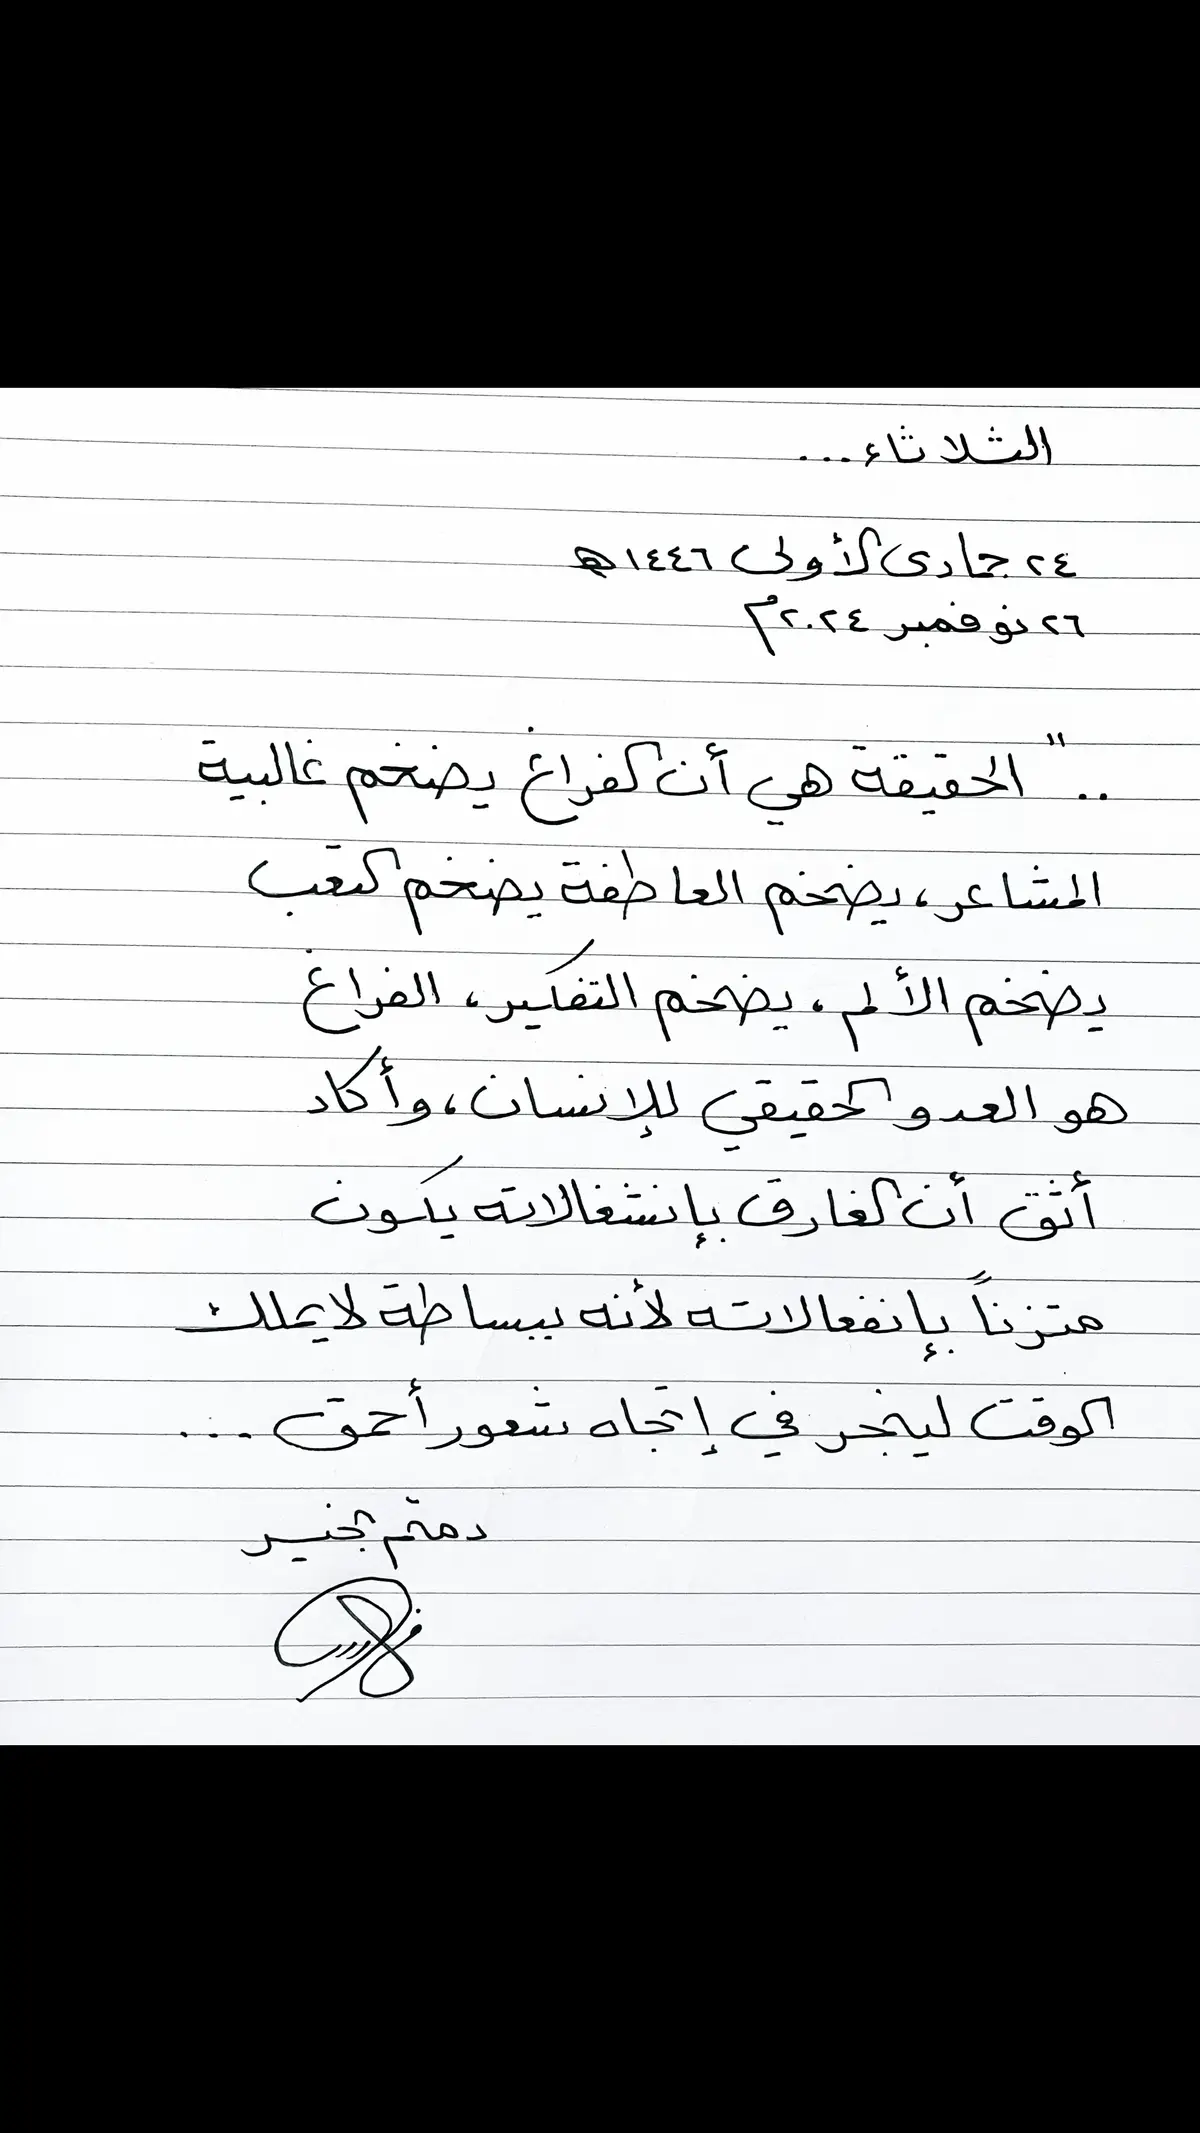 الثلاثاء...
٢٤ جمادى الأولى ١٤٤٦هـ
٢٦ نوفمبر ٢٠٢٤م
.. " الحقيقة هي أن الفراغ يضخم غالبية
المشاعر، يضخم العاطفة يضخم التعب
يضخم الألم، يضخم التفكير، الفراغ
هو العدو الحقيقي للإنسان، وأكاد
أثق أن الغارق بإنشغالاته يكون
متزناً بإنفعالاته لأنه ببساطة لا يملك
الوقت لينجر في إتجاه شعور أحمق ...
دمتم بخير